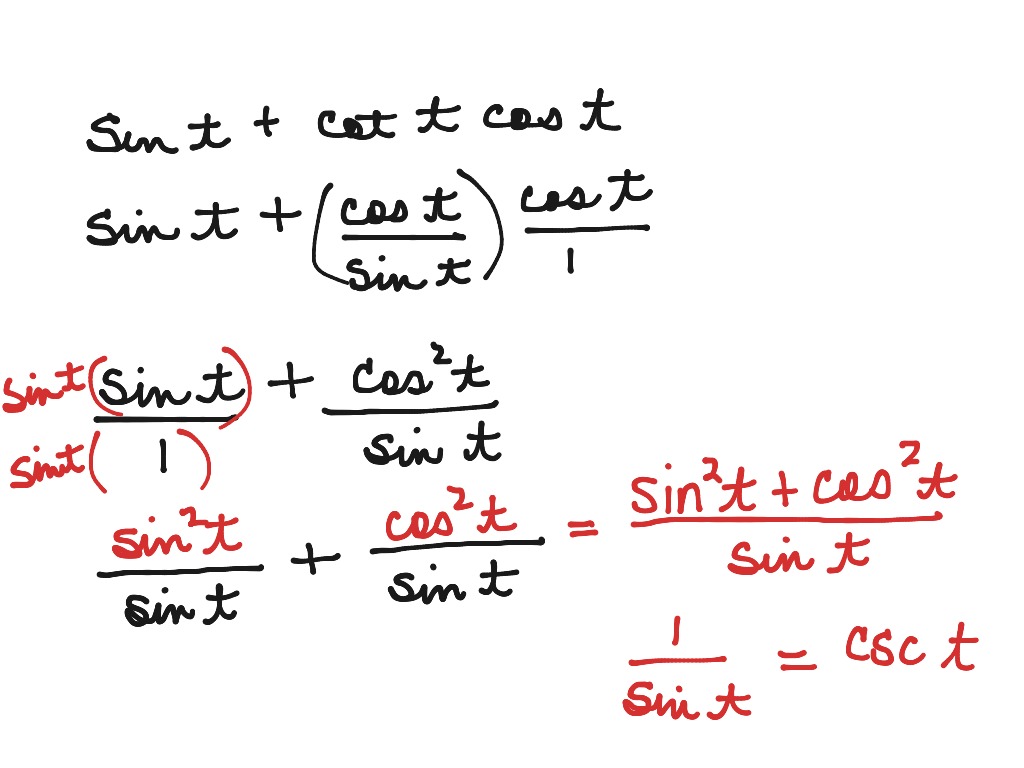 sin t + cot t cos t
sin t + (cos t / sin t) cos t / 1
sin t (sin t) / sin t (1) + cos²t / sin t
sin²t / sin t + cos²t / sin t = sin²t + cos²t / sin t
1 / sin t = csc t